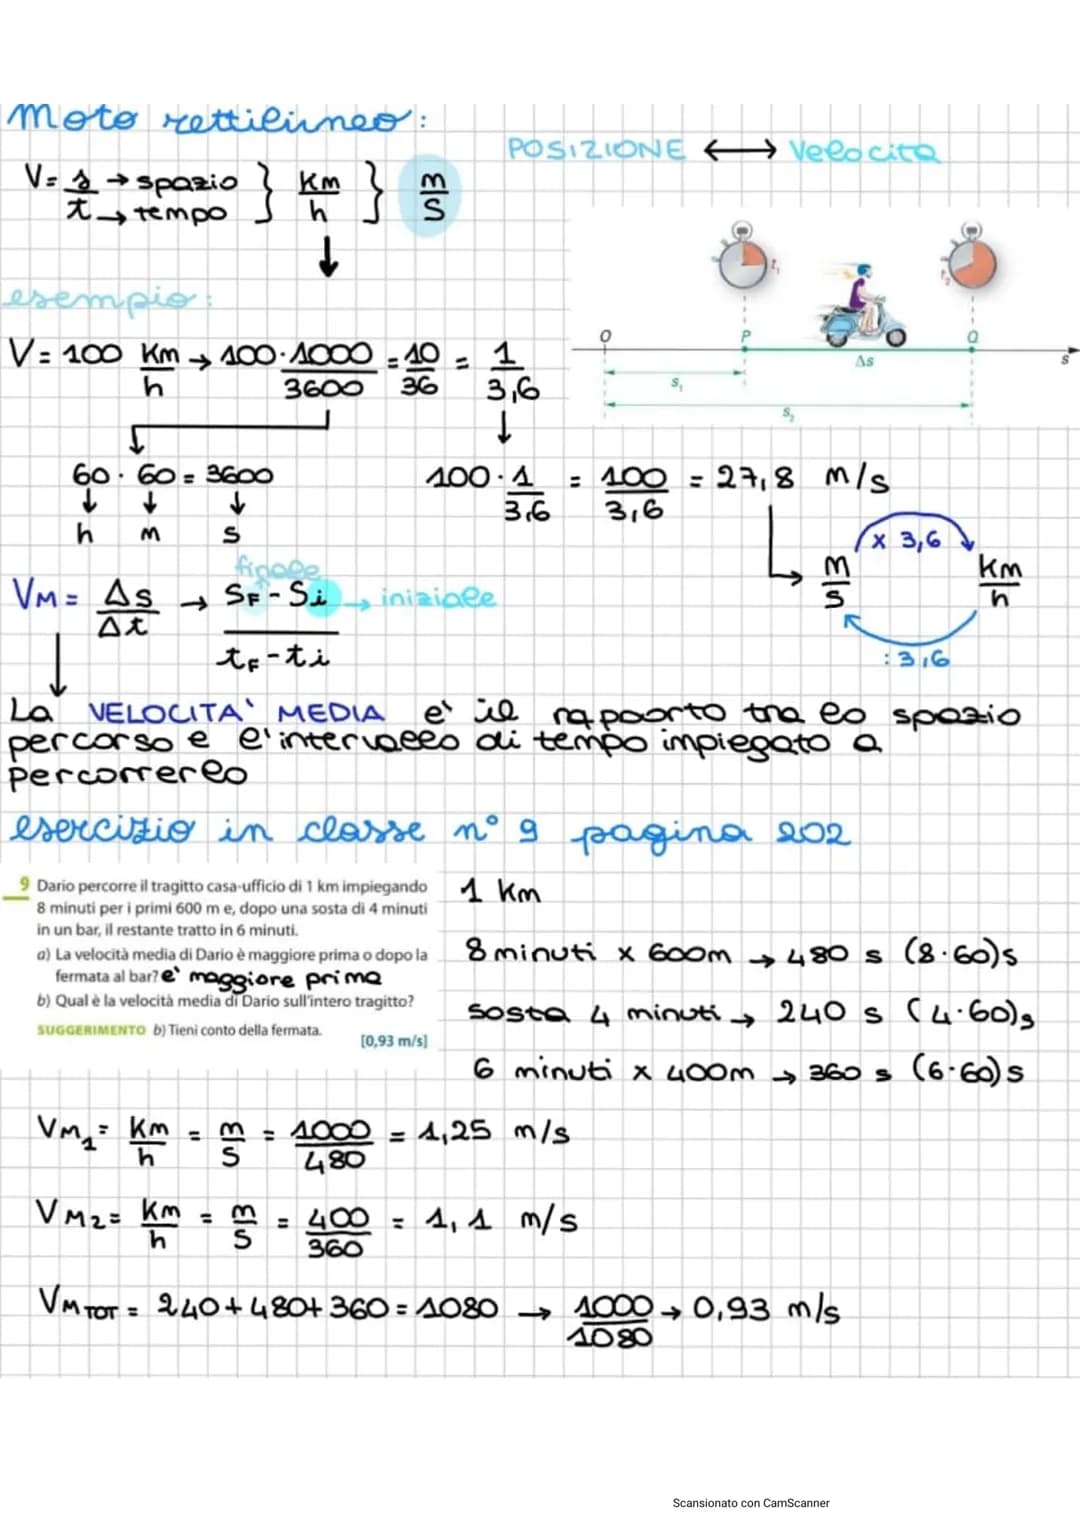 Moto rettilineo:
POSIZIONE ↔ Velocità
V = s → spazio } Km } m
t → tempo } h } s
↓
esempio:
V = 100 Km → 100·1000 = 10 = 1
h 3600 36 3,6
60 · 60 = 3600
↓ ↓ ↓
h m s
100 · 1 = 100 = 27,8 m/s
3,6 3,6
x 3,6
m km
s h
: 3,6
t₁
t₂
O P Q
Δs s
s₁
s₂
finale
VM = Δs → SF - Si → iniziale
Δt tF - ti
La VELOCITA' MEDIA e' il rapoorto tra lo spazio
percorso e l'intervallo di tempo impiegato a
percorrerlo
esercizio in classe n° 9 pagina 202
9 Dario percorre il tragitto casa-ufficio di 1 km impiegando
8 minuti per i primi 600 m e, dopo una sosta di 4 minuti
in un bar, il restante tratto in 6 minuti.
a) La velocità media di Dario è maggiore prima o dopo la
fermata al bar? e' maggiore prima
b) Qual è la velocità media di Dario sull'intero tragitto?
SUGGERIMENTO b) Tieni conto della fermata.
[0,93 m/s]
1 Km
8 minuti x 600m → 480 s (8·60)s
sosta 4 minuti → 240 s (4·60)s
6 minuti x 400m → 360 s (6·60)s
VM1 = Km = m = 1000 = 1,25 m/s
h s 480
VM2 = Km = m = 400 = 1,1 m/s
h s 360
VM TOT = 240 + 480 + 360 = 1080 → 1000 → 0,93 m/s
1080
Scansionato con CamScanner